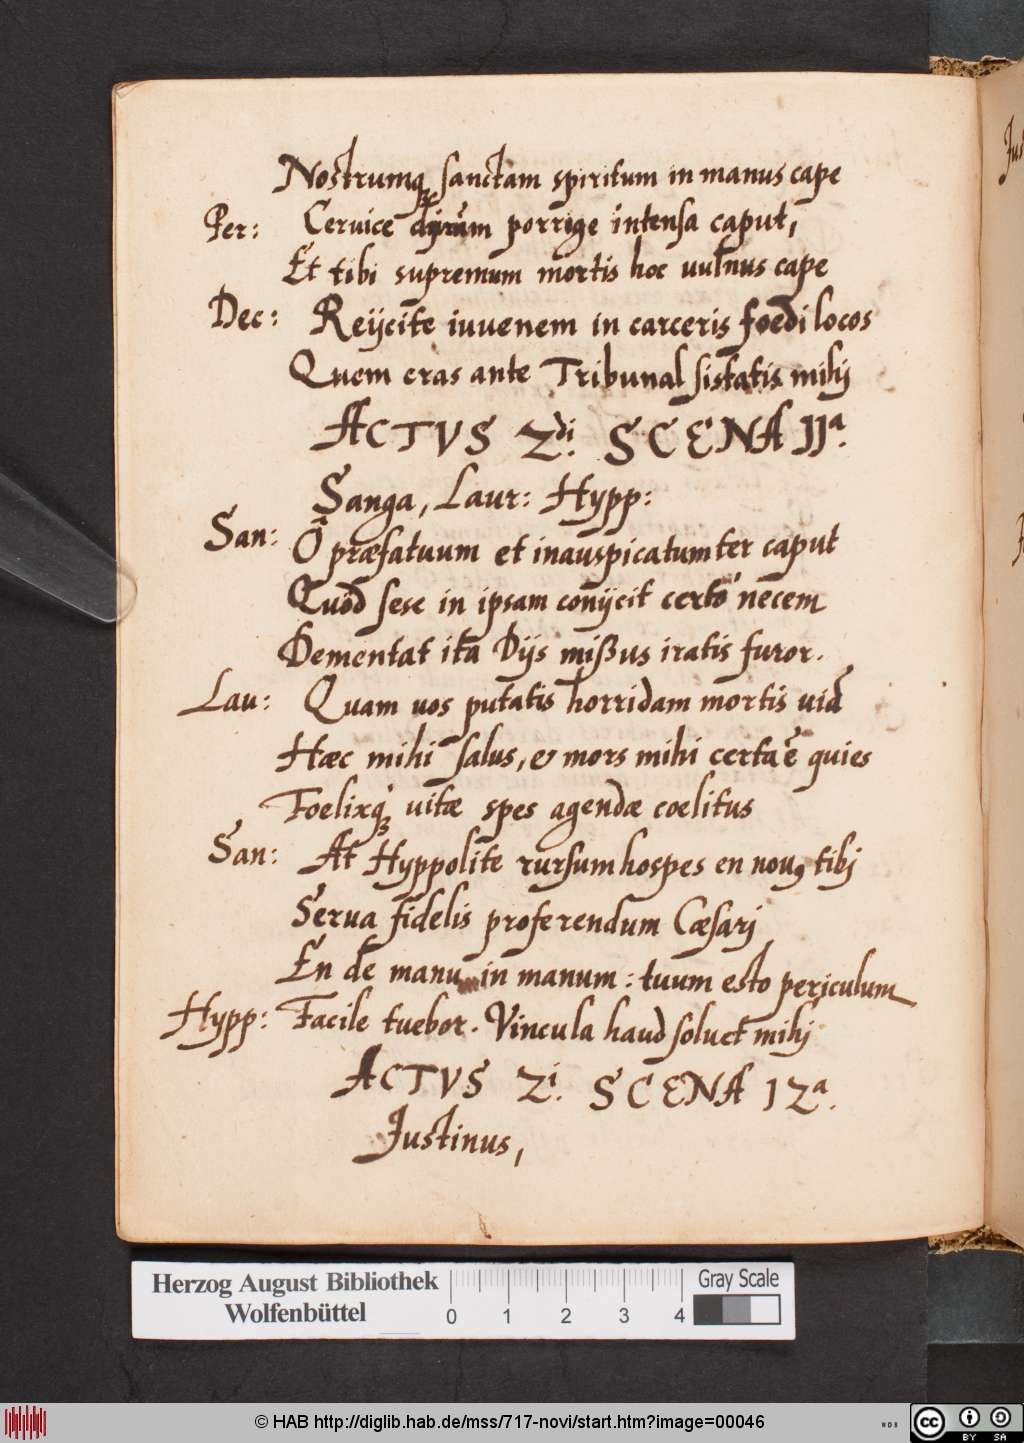 Nostrumq; sanctam spiritum in manus cape
Per: Ceruice porrige intensa caput,
Et tibi supremum mortis hoc uulnus cape
Dec: Reijcite iuuenem in carceris foedi locos
Quem cras ante Tribunal sistatis mihj
ACTVS 2di. SCENA IIa.
Sanga, Laur: Hypp:
San: Ô præfatuum et inauspicatum ter caput
Quod sese in ipsam conijcit certò necem
Dementat ita Dijs mißus iratis furor.
Lau: Quam uos putatis horridam mortis uiã
Hæc mihi salus, & mors mihi certa ẽ quies
Foelixq; uitæ spes agendæ coelitus
San: At Hyppolite rursum hospes en nouus tibj
Serua fidelis proferendum Cæsarj
En de manu in manum: tuum esto periculum
Hypp: Facile tuebor. Vincula haud soluet mihj
ACTVS 2i. SCENA 12a.
Justinus,
Herzog August Bibliothek
Wolfenbüttel
0 1 2 3 4
Gray Scale
© HAB http://diglib.hab.de/mss/717-novi/start.htm?image=00046
WDB
cc BY SA